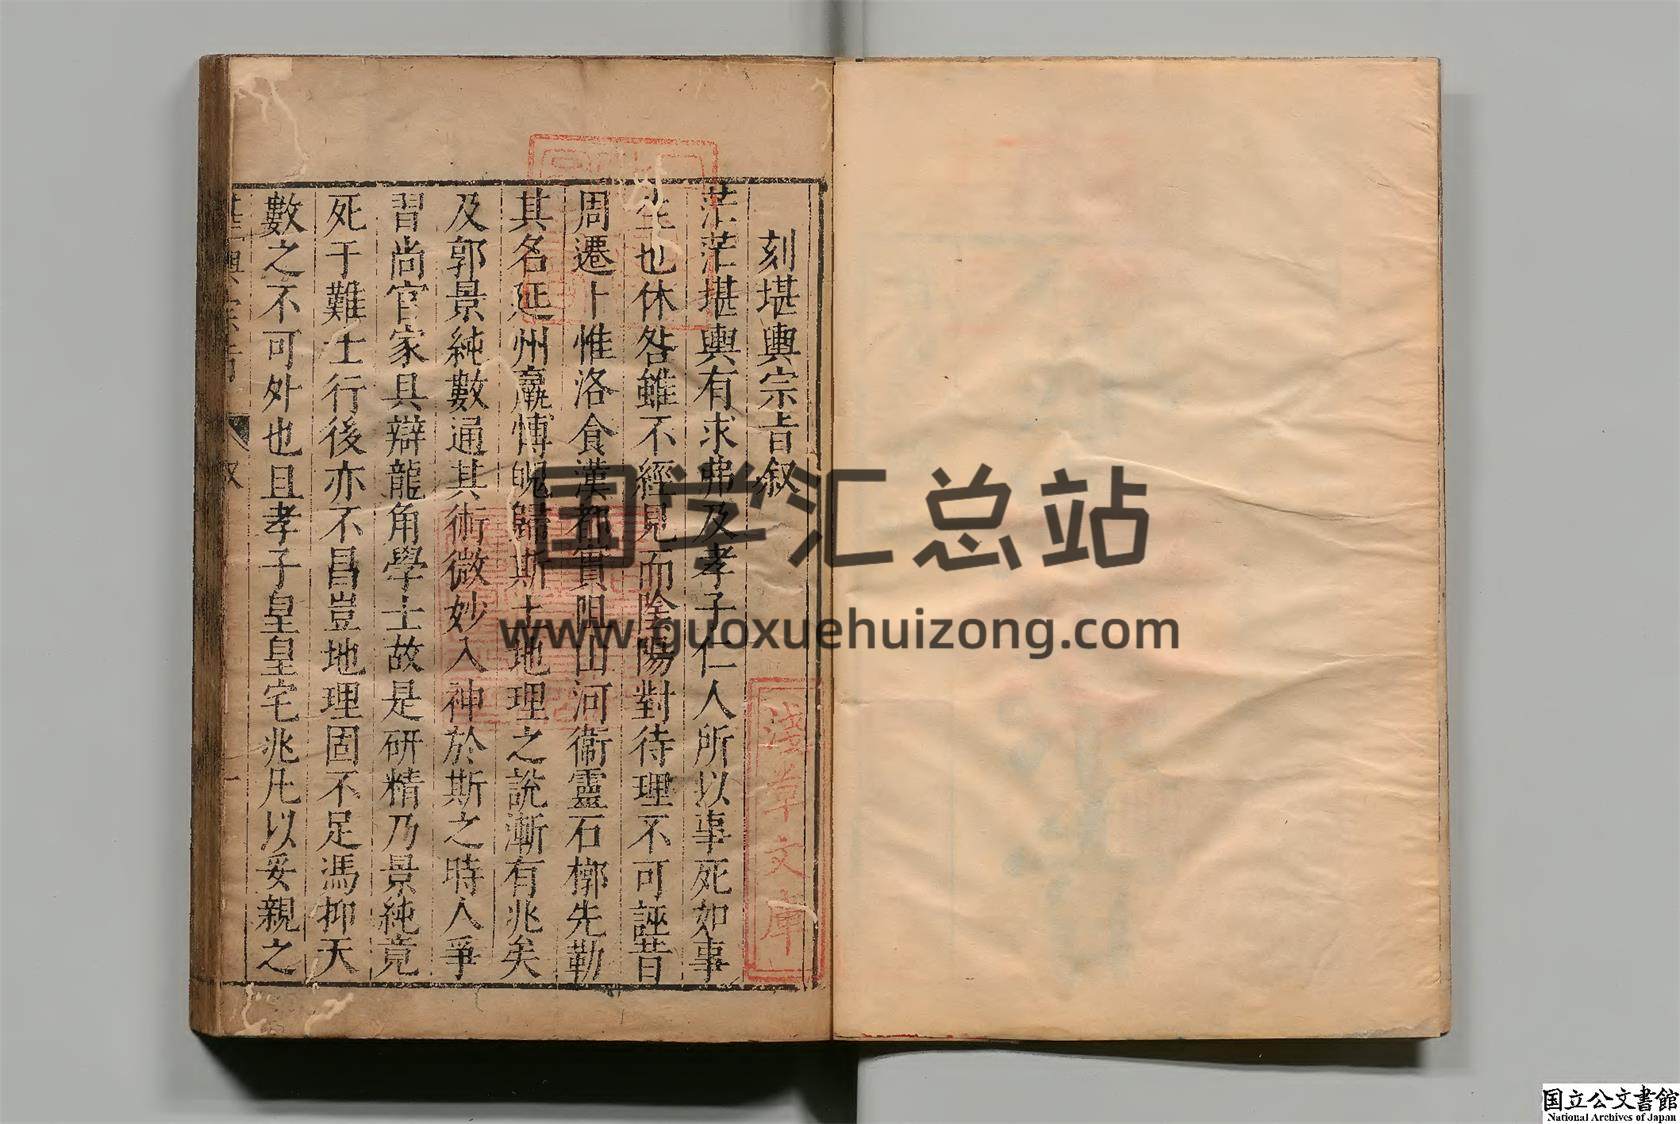 刻堪輿宗旨叙
茫茫堪輿有求弗及孝子仁人所以事死如事
生也休咎雖不經見而陰陽對待理不可誣昔
周遷卜惟洛食漢都實阻山河衞靈石槨先勒
其名延州嬴博睨歸斯土地理之說漸有兆矣
及郭景純數通其術微妙入神於斯之時人爭
習尚官家具辯龍角學士故是研精乃景純竟
死于難士行後亦不昌豈地理固不足馮抑天
數之不可外也且孝子皇皇宅兆凡以妥親之
堪輿宗旨 叙 一
淺草文庫
国学汇总站
www.guoxuehuizong.com
国立公文書館
National Archives of Japan